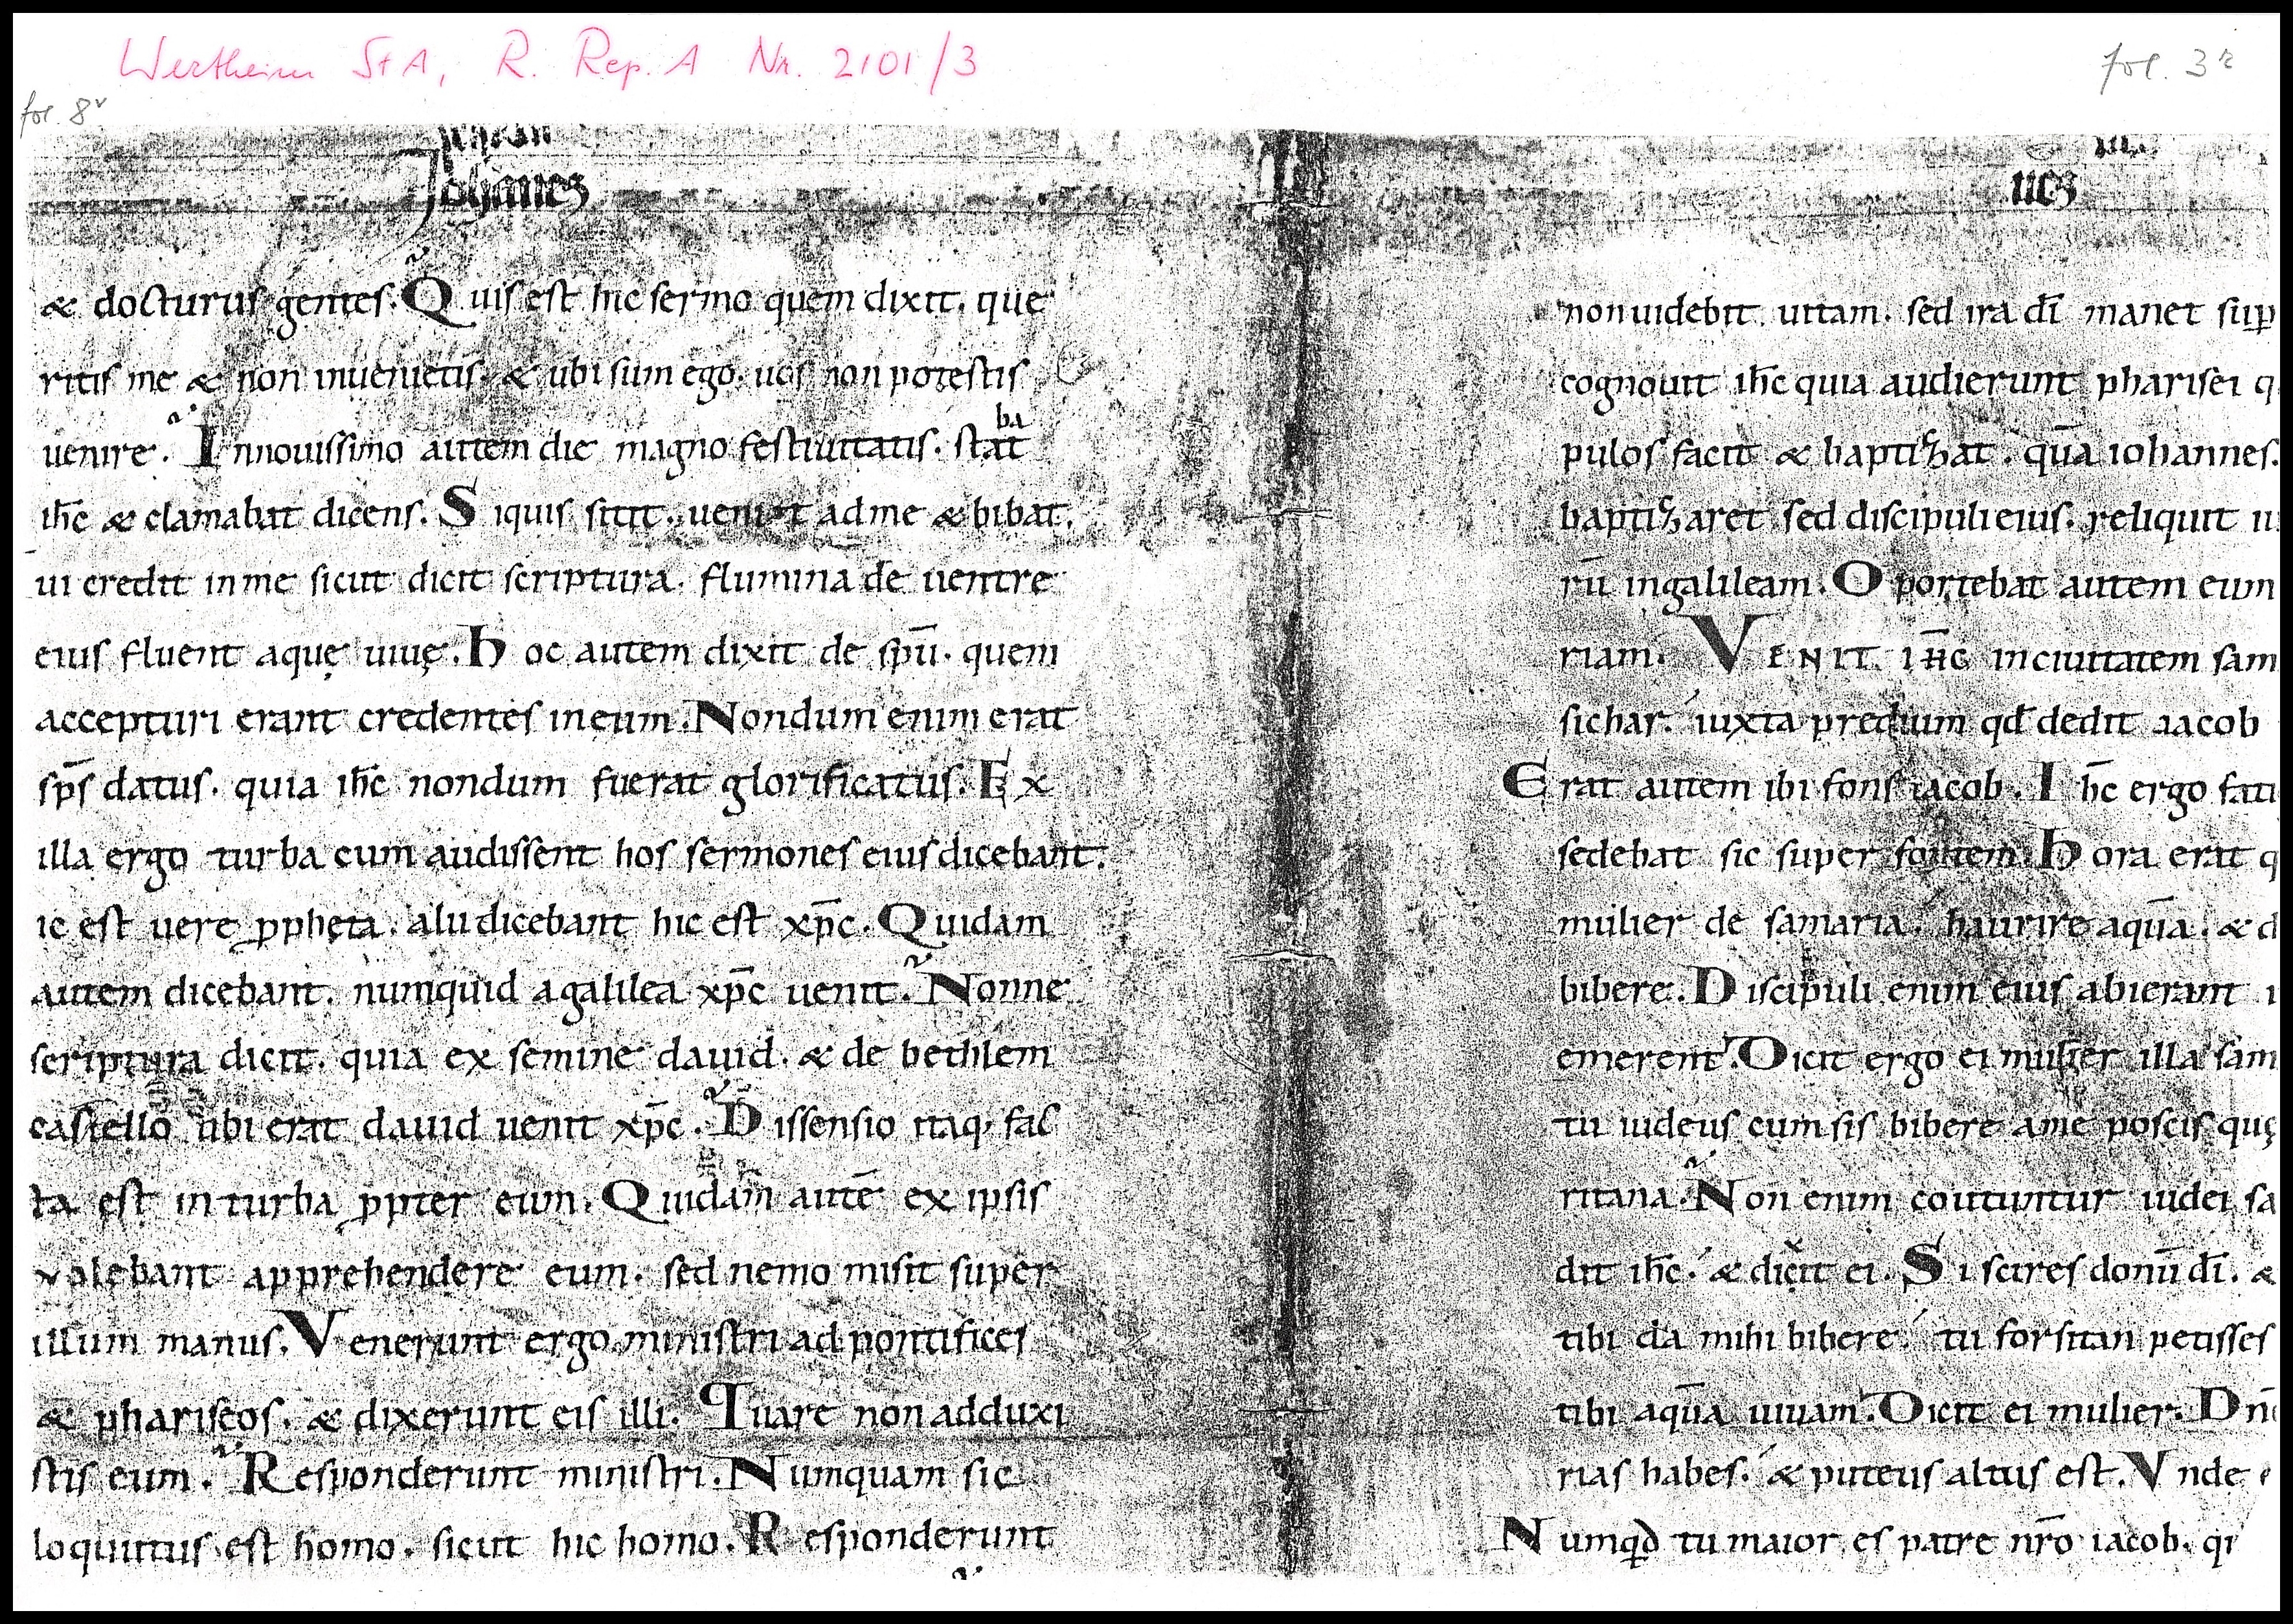 Wertheim StA, R. Rep. A Nr. 2101/3
fol. 8v
fol. 3r
Johannes
& docturus gentes. Quis est hic sermo quem dixit. que
ritis me & non inuenietis. & ubi sum ego. uos non potestis
uenire. In nouissimo autem die magno festiuitatis. stabat
ih̄c & clamabat dicens. Siquis sitit. ueniat ad me & bibat.
ui credit in me sicut dicit scriptura. flumina de uentre
eius fluent aquę uiuę. hoc autem dixit de sp̄u. quem
accepturi erant credentes in eum. Nondum enim erat
sp̄s datus. quia ih̄c nondum fuerat glorificatus. Ex
illa ergo turba cum audissent hos sermones eius dicebant.
ic est uere ꝓpheta. alii dicebant hic est xp̄c. Quidam
autem dicebant. numquid a galilea xp̄c uenit. Nonne
scriptura dicit. quia ex semine dauid. & de bethlem
castello ubi erat dauid uenit xp̄c. Dissensio itaq; fac
ta est in turba ꝓpter eum. Quidam autē ex ipsis
uolebant apprehendere eum. sed nemo misit super
illum manus. Venerunt ergo ministri ad pontifices
& phariseos. & dixerunt eis illi. Quare non adduxi
stis eum. Responderunt ministri. Numquam sic
loquutus est homo. sicut hic homo. Responderunt
nes
non uidebit uitam. sed ira dī manet sup̄
cognouit ih̄c quia audierunt pharisei q
pulos facit & baptizat. quā iohannes.
baptizaret sed discipuli eius. reliquit iu
rū in galileam. Oportebat autem eum
riam. VENIT IH̄C in ciuitatem sam
sichar. iuxta predium qd̄ dedit iacob
Erat autem ibi fons iacob. Ih̄c ergo fati
sedebat sic super fontem. hora erat q
mulier de samaria. haurire aquā. & d
bibere. Discipuli enim eius abierant i
emerent. Dicit ergo ei mulier illa sam
tu iudeus cum sis bibere a me poscis quę
ritana. Non enim coutuntur iudei sa
dit ih̄c. & dicit ei. Si scires donū dī. &
tibi da mihi bibere. tu forsitan petisses
tibi aquā uiuam. Dicit ei mulier. Dn̄e
rias habes. & puteus altus est. Vnde
Numqd̄ tu maior es patre nr̄o iacob. qi